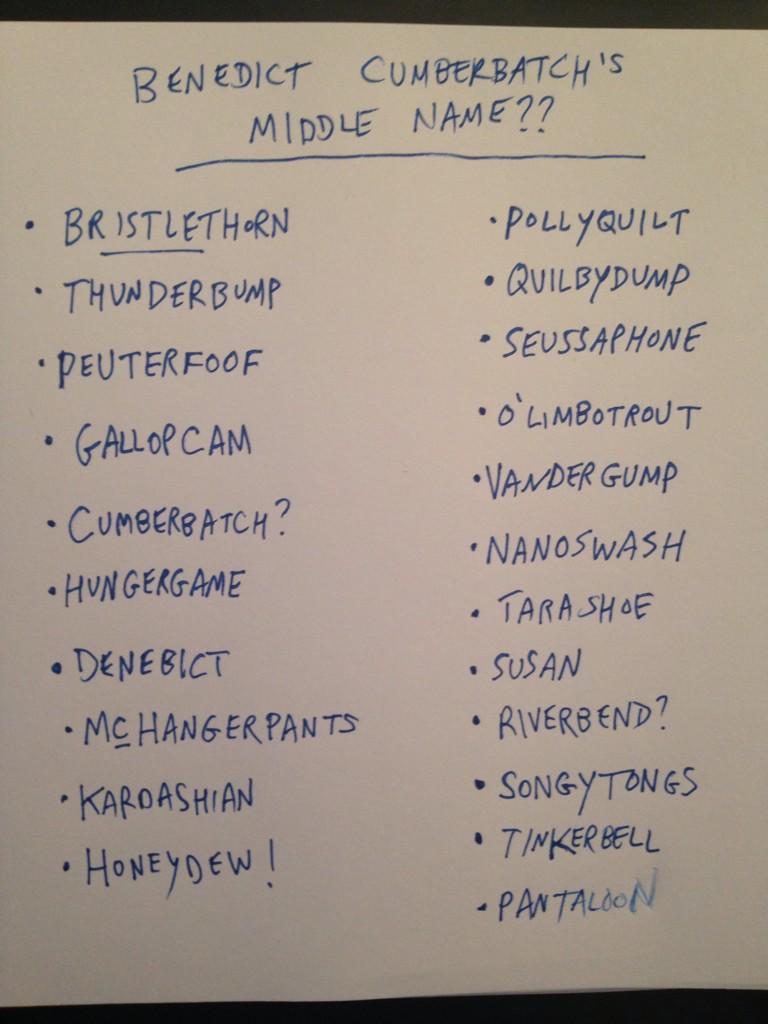 BENEDICT CUMBERBATCH'S
MIDDLE NAME??
• BRISTLETHORN
• THUNDERBUMP
• PEUTERFOOF
• GALLOPCAM
• CUMBERBATCH?
• HUNGERGAME
• DENEBICT
• McHANGERPANTS
• KARDASHIAN
• HONEYDEW!
• POLLYQUILT
• QUILBYDUMP
• SEUSSAPHONE
• O'LIMBOTROUT
• VANDERGUMP
• NANOSWASH
• TARASHOE
• SUSAN
• RIVERBEND?
• SONGYTONGS
• TINKERBELL
• PANTALOON